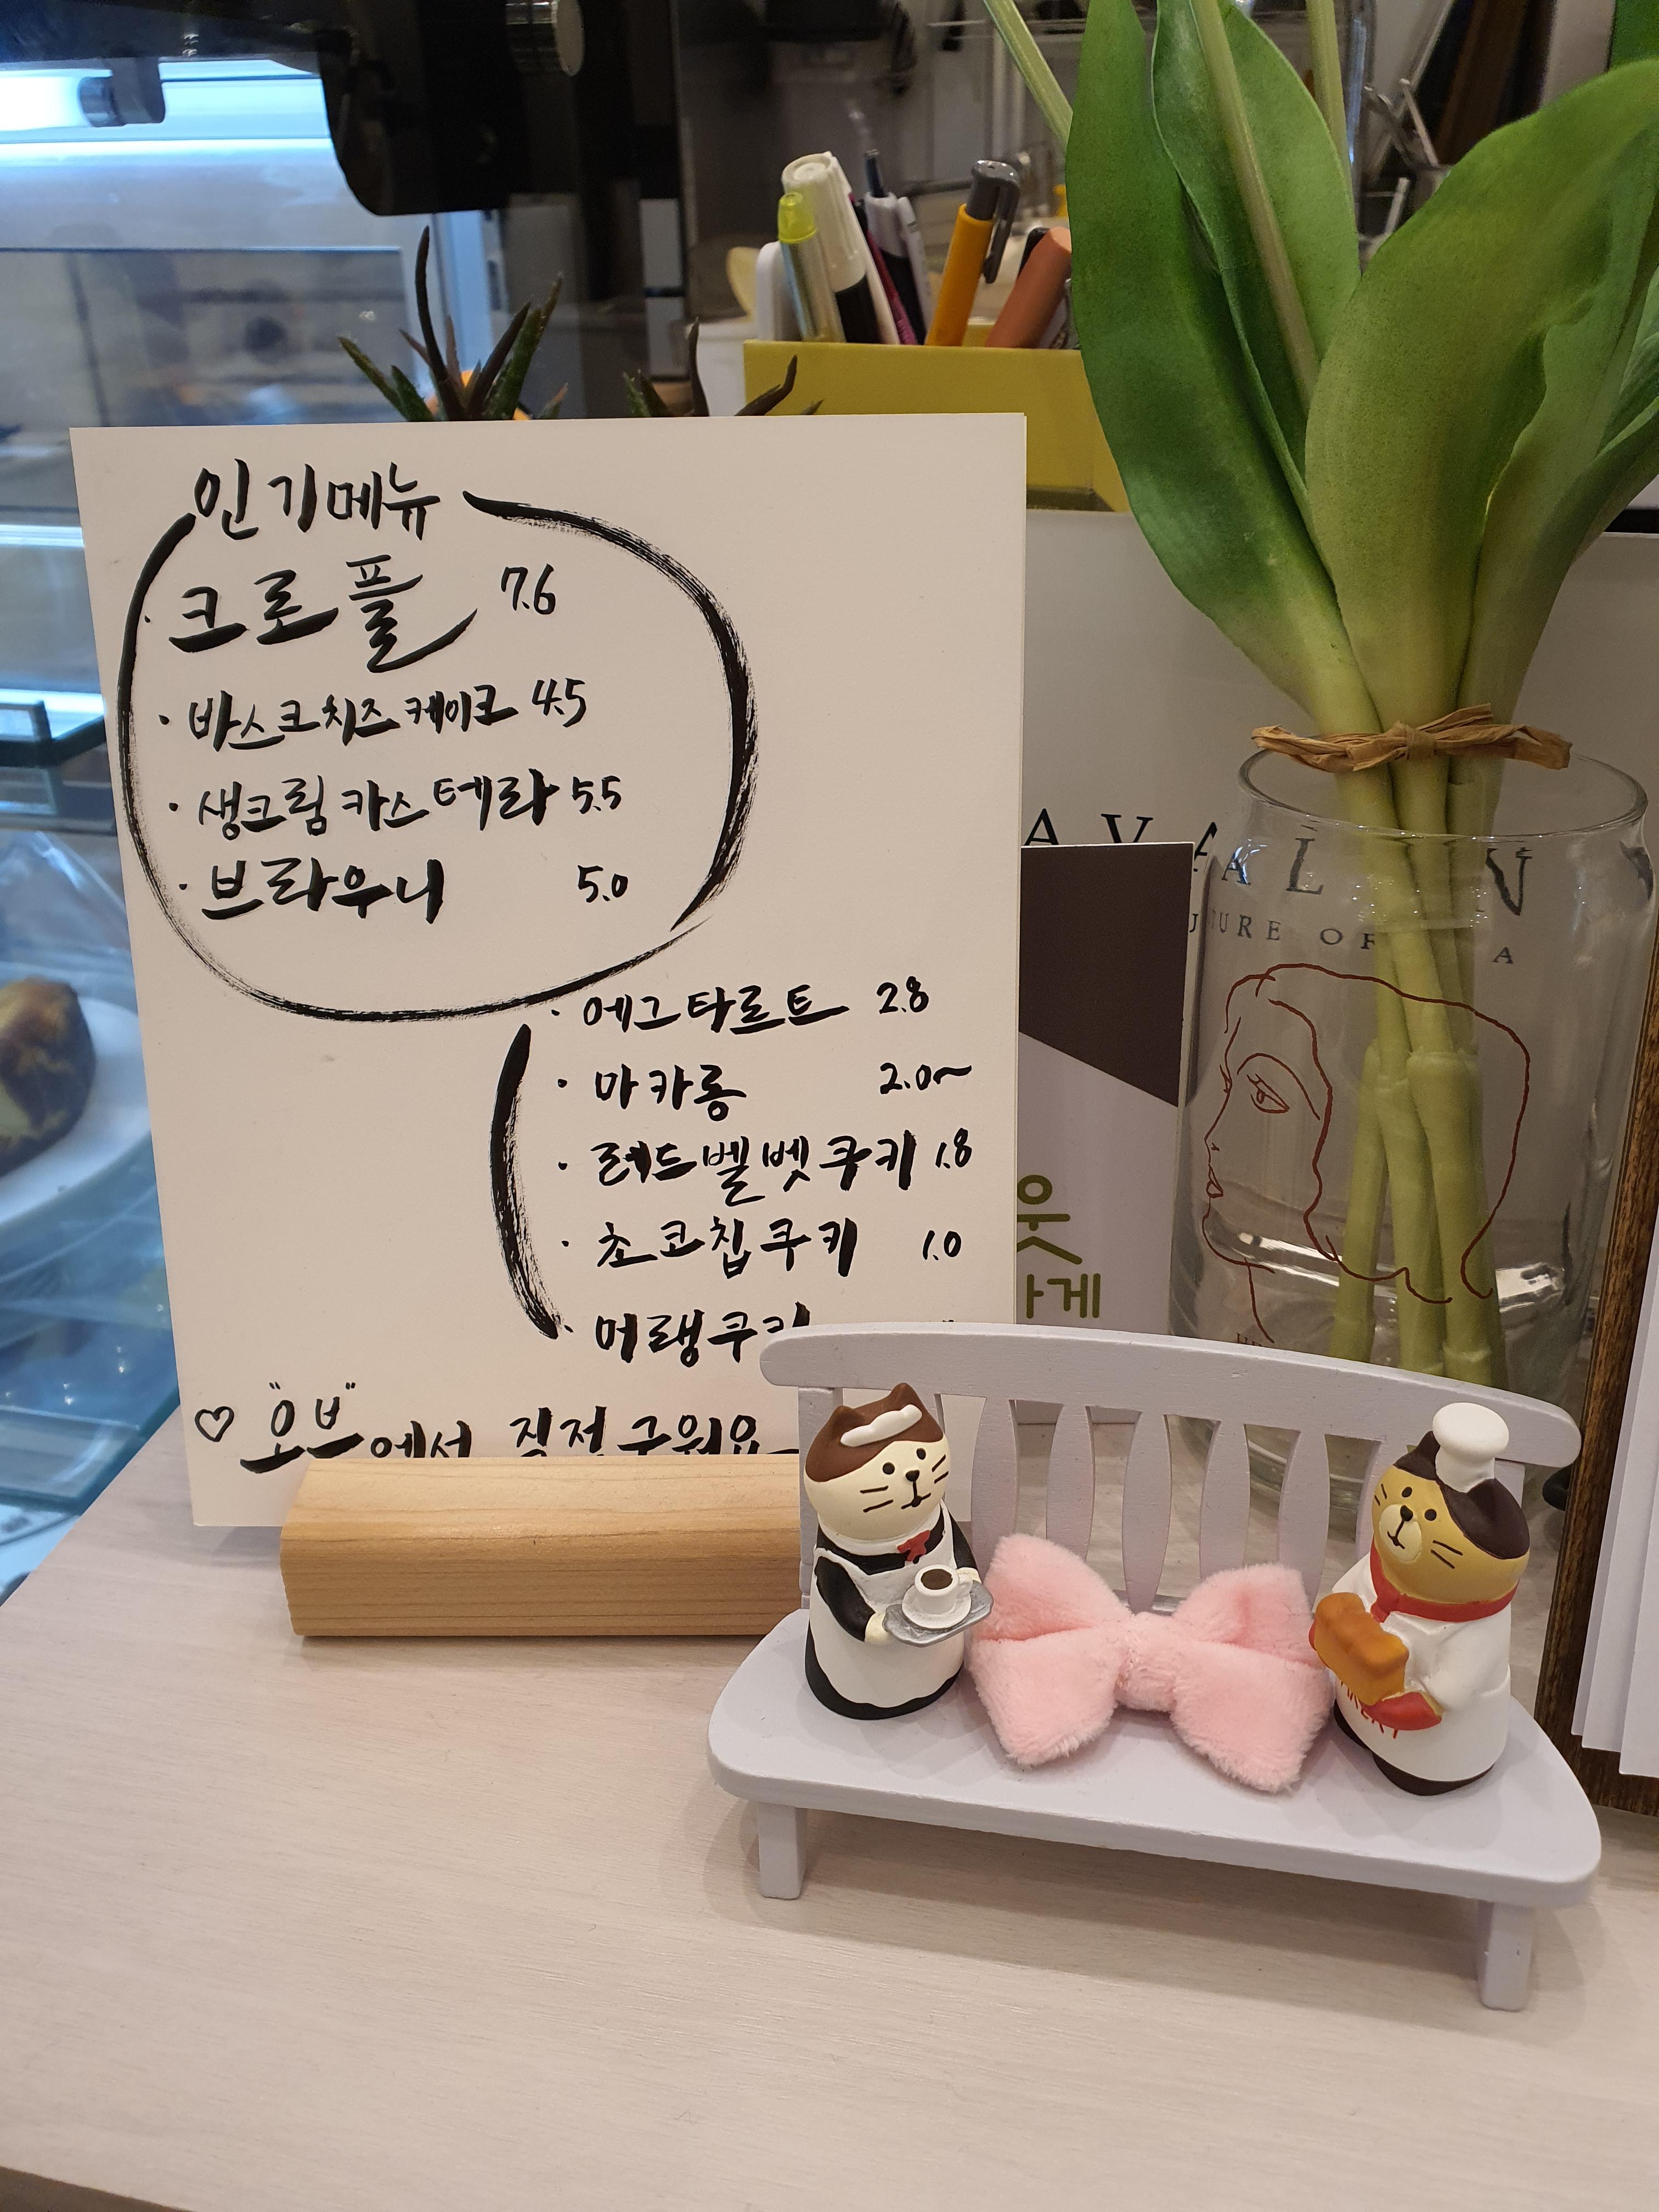 인기메뉴
· 크로플 7.6
· 바스크치즈케이크 4.5
· 생크림카스테라 5.5
· 브라우니 5.0
· 에그타르트 2.8
· 마카롱 2.0~
· 레드벨벳쿠키 1.8
· 초코칩쿠키 1.0
· 머랭쿠키
♡ "오브"에서 직접 구워요
AVALON
URE OF
A
웃
게